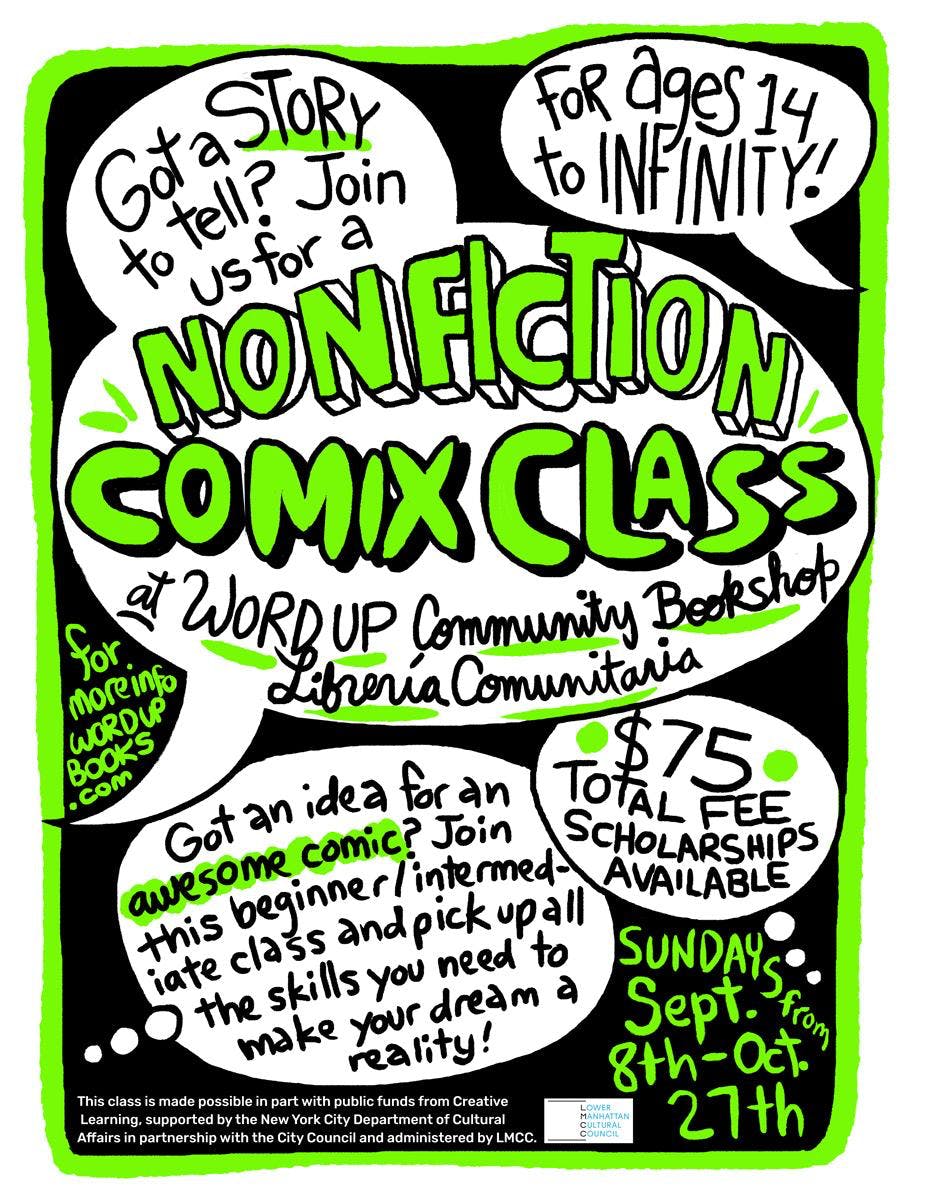 Got a STORY
to tell? Join
us for a
FOR ages 14
to INFINITY!
NONFICTION
COMIX CLASS
at WORD UP Community Bookshop
Librería Comunitaria
for
more info
WORD UP
BOOKS
.com
$75
TOTAL FEE
SCHOLARSHIPS
AVAILABLE
Got an idea for an
awesome comic? Join
this beginner/intermed-
iate class and pick up all
the skills you need to
make your dream a
reality!
SUNDAYS
from
Sept.
8th-Oct.
27th
This class is made possible in part with public funds from Creative
Learning, supported by the New York City Department of Cultural
Affairs in partnership with the City Council and administered by LMCC.
LOWER
MANHATTAN
CULTURAL
COUNCIL